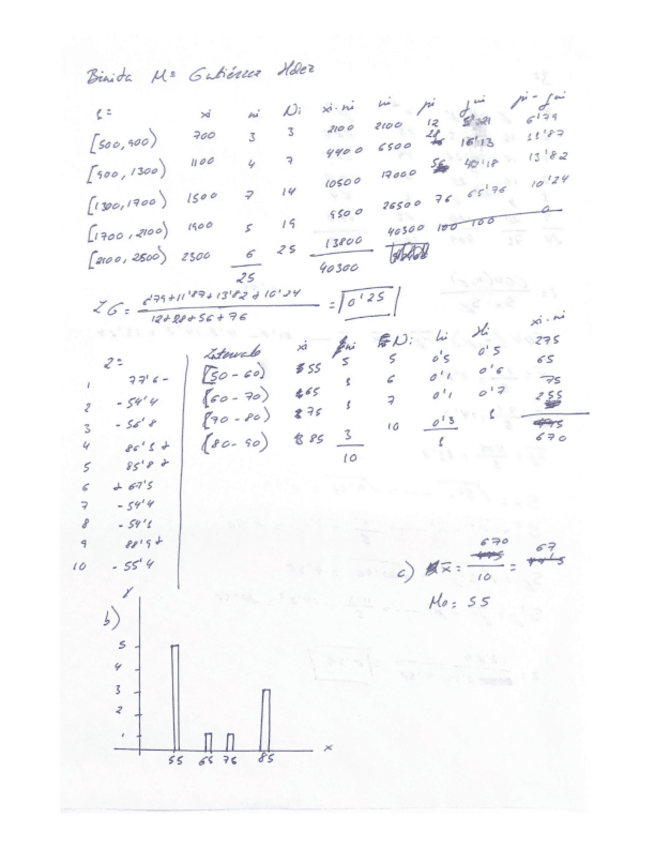 Mª Gutiérrez Hdez
1=
xi ni Ni xi·ni ui pi qi pi-qi
[500,900) 700 3 3 2100 2100 12 5'21 6'79
[900, 1300) 1100 4 7 4400 6500 28 16'13 11'87
[1300,1700) 1500 7 14 10500 17000 56 13'82
[1700, 2100) 1900 5 19 9500 26500 76 65'76 10'24
[2100, 2500) 2300 6 25 13800 40300 100 100 0
25 40300
IG = 6'79+11'87+13'82+10'24 / 12+28+56+76 = 0'25
2=
1 77'6 -
2 - 54'4
3 - 56'8
4 86'5
5 85'8
6 67'5
7 - 54'4
8 - 54'1
9 88'9
10 - 55'4
Intervalo xi ni Ni hi Hi xi·ni
[50-60) 55 5 5 0'5 0'5 275
[60-70) 65 1 6 0'1 0'6 65
[70-80) 75 1 7 0'1 0'7 75
[80-90) 85 3 10 0'3 1 255
10 1 670
c) x̄ = 670 / 10 = 67
Mo = 55
b)
y
5
4
3
2
1
55 65 75 85 x